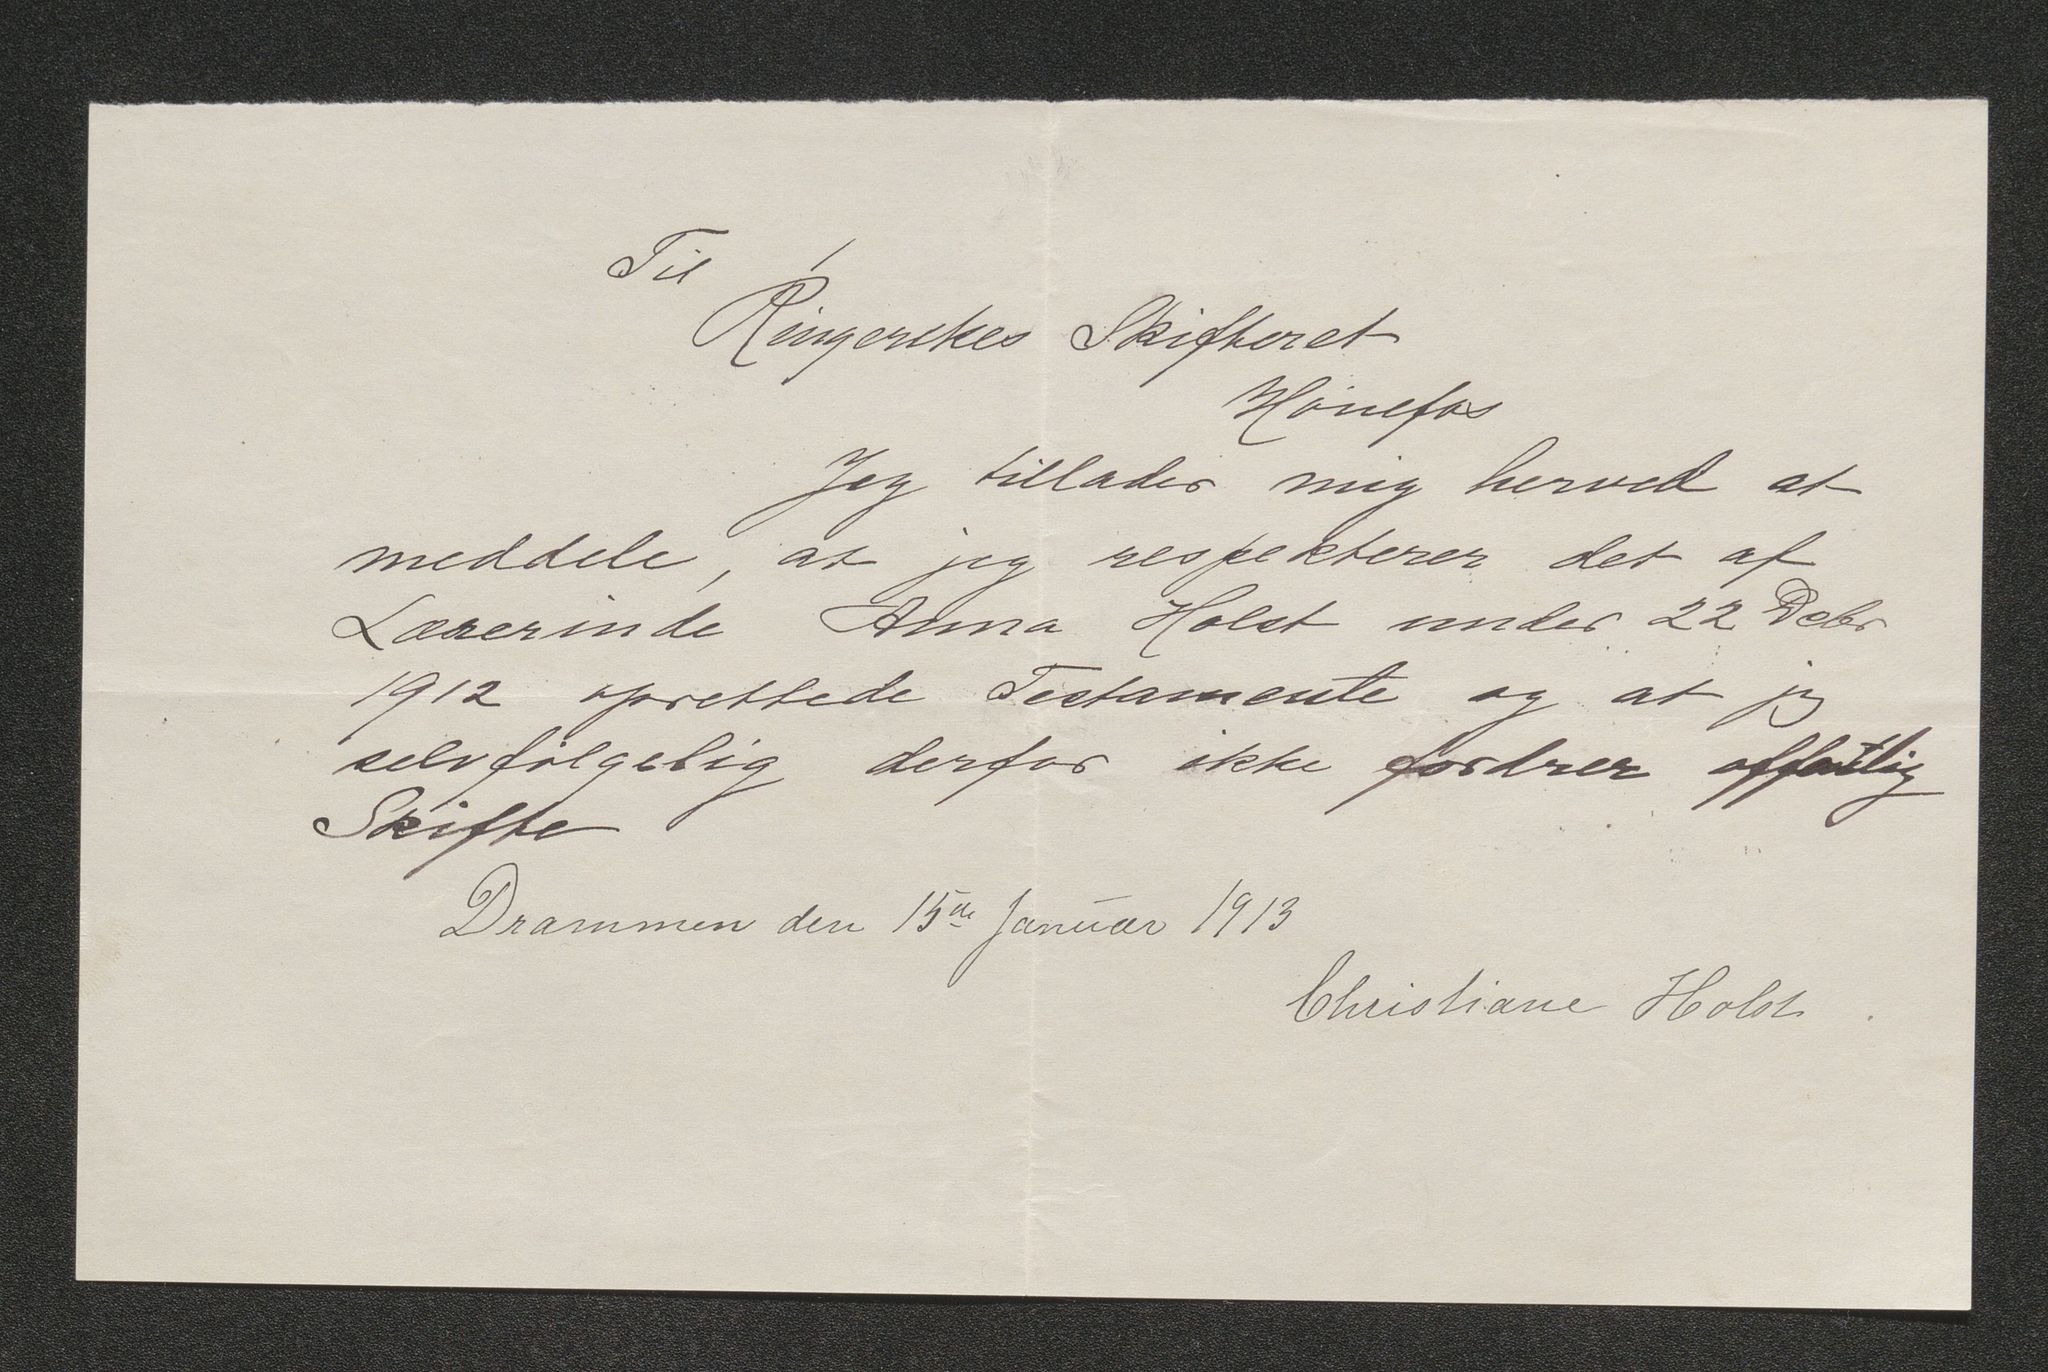 Til
Ringerikes Skifteret
Hönefos
Jeg tillader mig herved at
meddele, at jeg respekterer det af
Lærerinde Anna Holst under 22 Debr
1912 oprettede Testamente og at jeg
selvfölgelig derfor ikke fordrer offentlig
Skifte
Drammen den 15de Januar 1913
Christiane Holst.